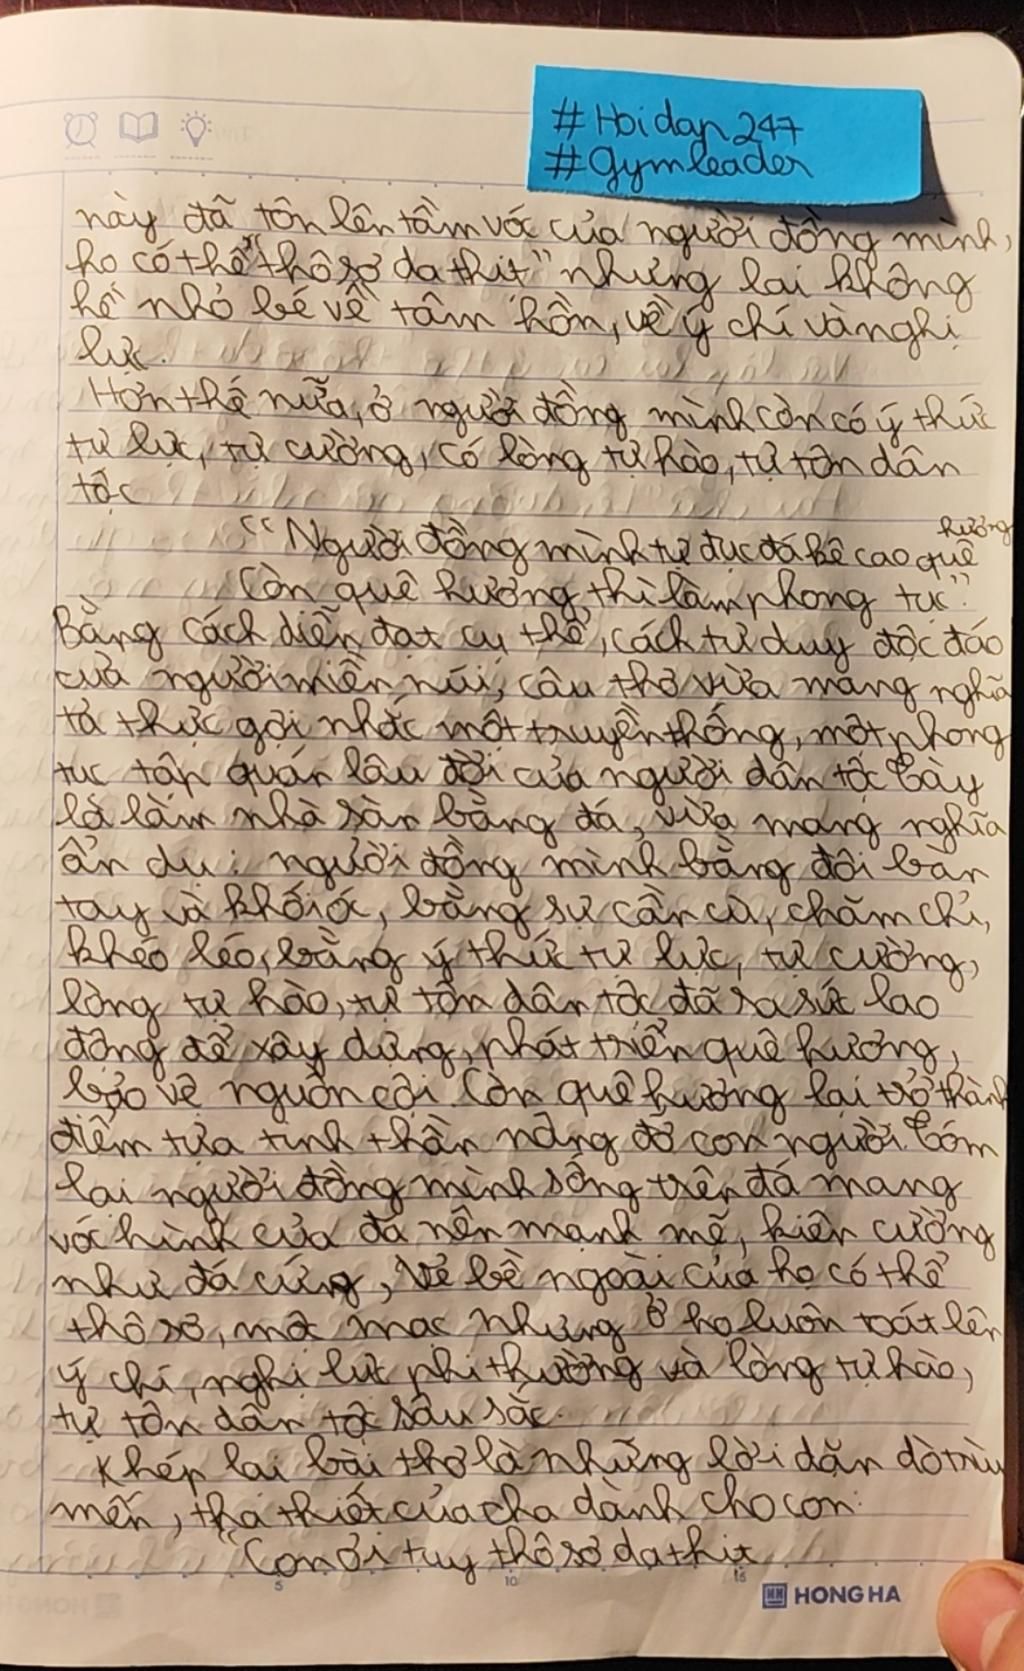 #Hoidap247
#Gymleader
này đã tôn lên tầm vóc của người đồng mình,
họ có thể "thô sơ da thịt" nhưng lại không
hề nhỏ bé về tâm hồn, về ý chí và nghị
lực.
Hơn thế nữa, ở người đồng mình còn có ý thức
tự lực, tự cường, có lòng tự hào, tự tôn dân
tộc
"Người đồng mình tự đục đá kê cao quê hương
Còn quê hương thì làm phong tục".
Bằng cách diễn đạt cụ thể, cách tư duy độc đáo
của người miền núi, câu thơ vừa mang nghĩa
tả thực gợi nhắc một truyền thống, một phong
tục tập quán lâu đời của người dân tộc Tày
là làm nhà sàn bằng đá, vừa mang nghĩa
ẩn dụ: người đồng mình bằng đôi bàn
tay và khối óc, bằng sự cần cù, chăm chỉ,
khéo léo, bằng ý thức tự lực, tự cường,
lòng tự hào, tự tôn dân tộc đã ra sức lao
động để xây dựng, phát triển quê hương,
bảo vệ nguồn cội. Còn quê hương lại trở thành
điểm tựa tinh thần nâng đỡ con người. Tóm
lại người đồng mình sống trên đá mang
vóc hình của đá nên mạnh mẽ, kiên cường
như đá cứng, vẻ bề ngoài của họ có thể
thô sơ, mộc mạc nhưng ở họ luôn toát lên
ý chí, nghị lực phi thường và lòng tự hào,
tự tôn dân tộc sâu sắc.
Khép lại bài thơ là những lời dặn dò trìu
mến, tha thiết của cha dành cho con:
"Con ơi tuy thô sơ da thịt
5 10 15
HONG HA